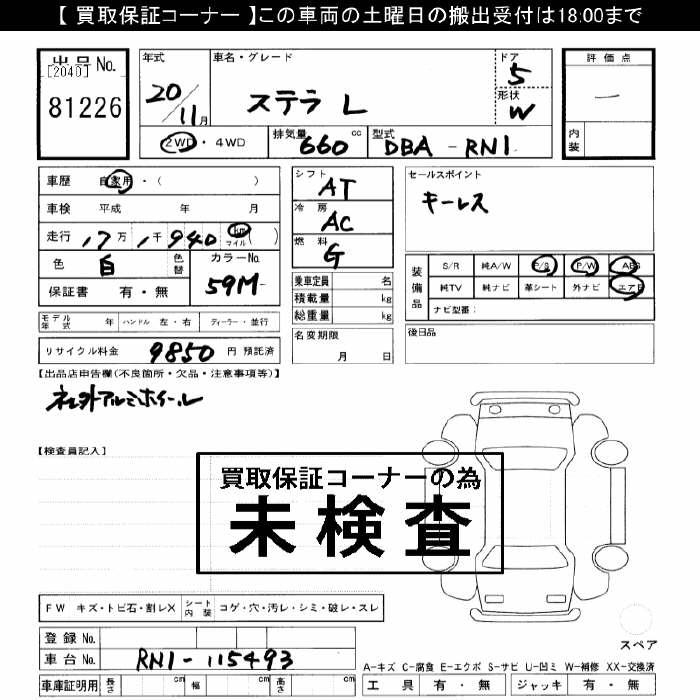 【 買取保証コーナー 】この車両の土曜日の搬出受付は18:00まで
出品No.
[2040]
81226
年式
20/11月
車名・グレード
ステラ L
ドア
5
形状
W
評価点
一
内装
2WD・4WD
排気量 660 cc
型式 DBA-RN1
車歴 自家用・( )
車検 平成 年 月
走行 17万 1千940 km マイル ( )
色 白 色替 カラーNo. 59M
保証書 有・無
シフト AT
冷房 AC
燃料 G
乗車定員 名
積載量 kg
総重量 kg
セールスポイント
キーレス
装備品
S/R 純A/W P/S P/W ABS
純TV 純ナビ 革シート 外ナビ エアB
ナビ型番:
モデル年式 年 ハンドル 左・右 ディーラー・並行
名変期限
月 日
後日品
リサイクル料金 9850 円 預託済
【出品店申告欄(不良箇所・欠品・注意事項等)】
社外アルミホイール
【検査員記入】
買取保証コーナーの為
未検査
FW キズ・トビ石・割レX シート内装 コゲ・穴・汚レ・シミ・破レ・スレ
登録No.
車台No. RN1-115493
車庫証明用 長さ cm 幅 cm 高さ cm
スペア
A-キズ C-腐食 E-エクボ S-サビ U-凹ミ W-補修 XX-交換済
工具 有・無 ジャッキ 有・無